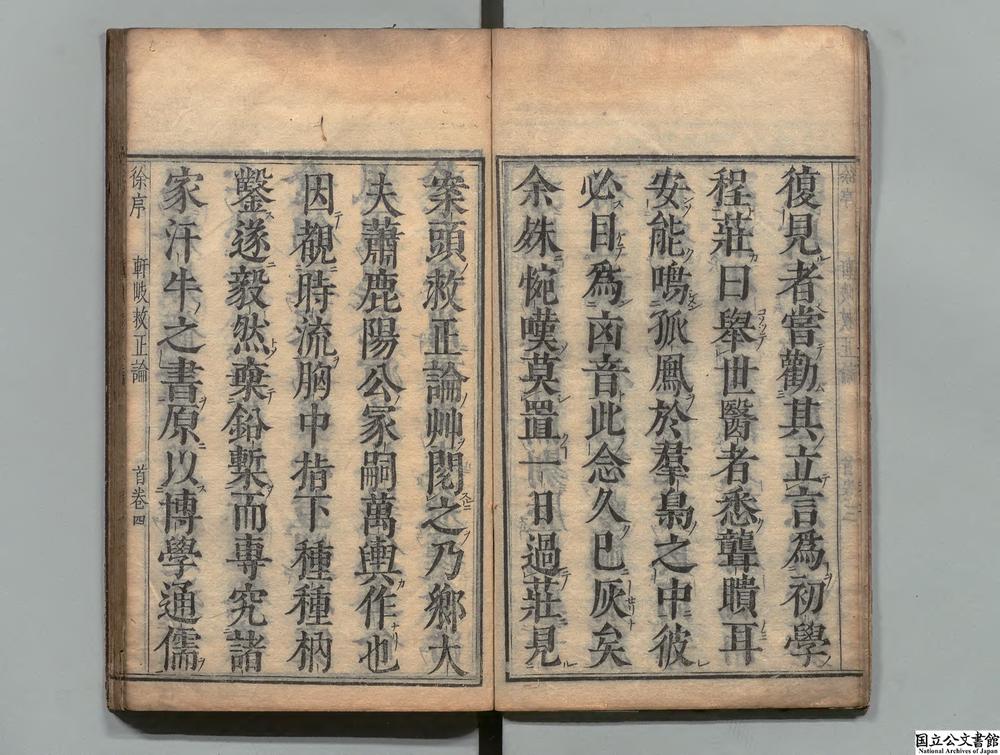 復見者嘗勸其立言為初學
程莊曰舉世醫者悉聾聵耳
安能鳴孤鳳於羣鳥之中彼
必目為凶音此念久已灰矣
余殊惋嘆莫置一日過莊見
案頭救正論艸閱之乃鄉大
夫蕭鹿陽公家嗣萬輿作也
因觀時流胸中指下種種柄
鑿遂毅然棄鉛槧而専究諸
家汗牛之書原以博學通儒
徐序 軒岐救正論 首卷四
国立公文書館
National Archives of Japan